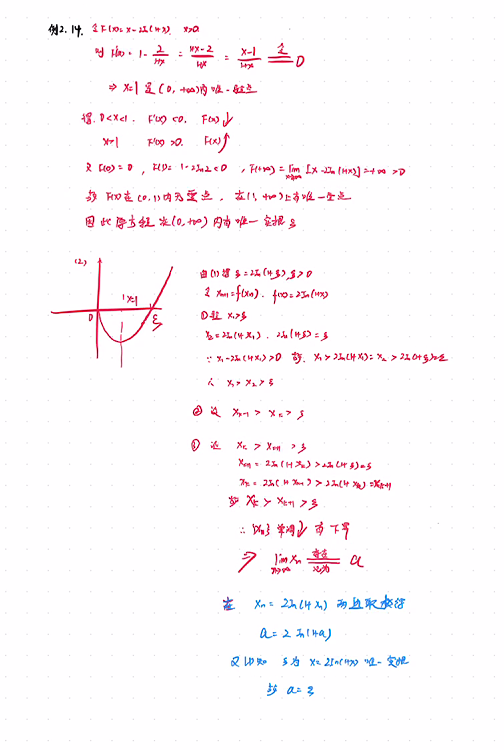 例2.14. 令F(x)=x-2ln(1+x). x>0.
则 F'(x)=1-2/(1+x)=(1+x-2)/(1+x)=(x-1)/(1+x) 令 0
⇒ x=1 是(0,+∞)内唯一驻点
得. 0<x<1. F'(x)<0. F(x)↓
x>1 F'(x)>0. F(x)↑
又 F(0)=0, F(1)=1-2ln2<0, F(+∞)=lim x→+∞ [x-2ln(1+x)]=+∞>0
故 F(x)在(0,1)内无零点, 在(1,+∞)上有唯一零点
因此原方程在(0,+∞)内有唯一实根ξ
(2)
x=1
0
ξ
由(1)得 ξ=2ln(1+ξ),ξ>0
令 xn+1=f(xn). f(x)=2ln(1+x)
① 取 x₁>ξ
x₂=2ln(1+x₁). 2ln(1+ξ)=ξ
∵ x₁-2ln(1+x₁)>0 故. x₁>2ln(1+x₁)=x₂>2ln(1+ξ)=ξ
∴ x₁>x₂>ξ
② 设 xk-1>xk>ξ
③ 证 xk>xk+1>ξ
xk+1=2ln(1+xk)>2ln(1+ξ)=ξ
xk=2ln(1+xk-1)>2ln(1+xk)=xk+1
故 xk>xk+1>ξ
∴ {xn} 单调↓ 有下界
⇒ lim n→∞ xn 存在 记为 a
在 xn=2ln(1+xn) 两边取极限
a=2ln(1+a)
又 ξ为 x=2ln(1+x) 唯一实根
故 a=ξ